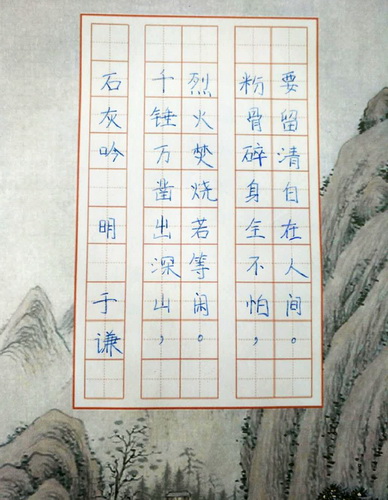 石灰吟 明 于谦
千锤万凿出深山，
烈火焚烧若等闲。
粉骨碎身全不怕，
要留清白在人间。